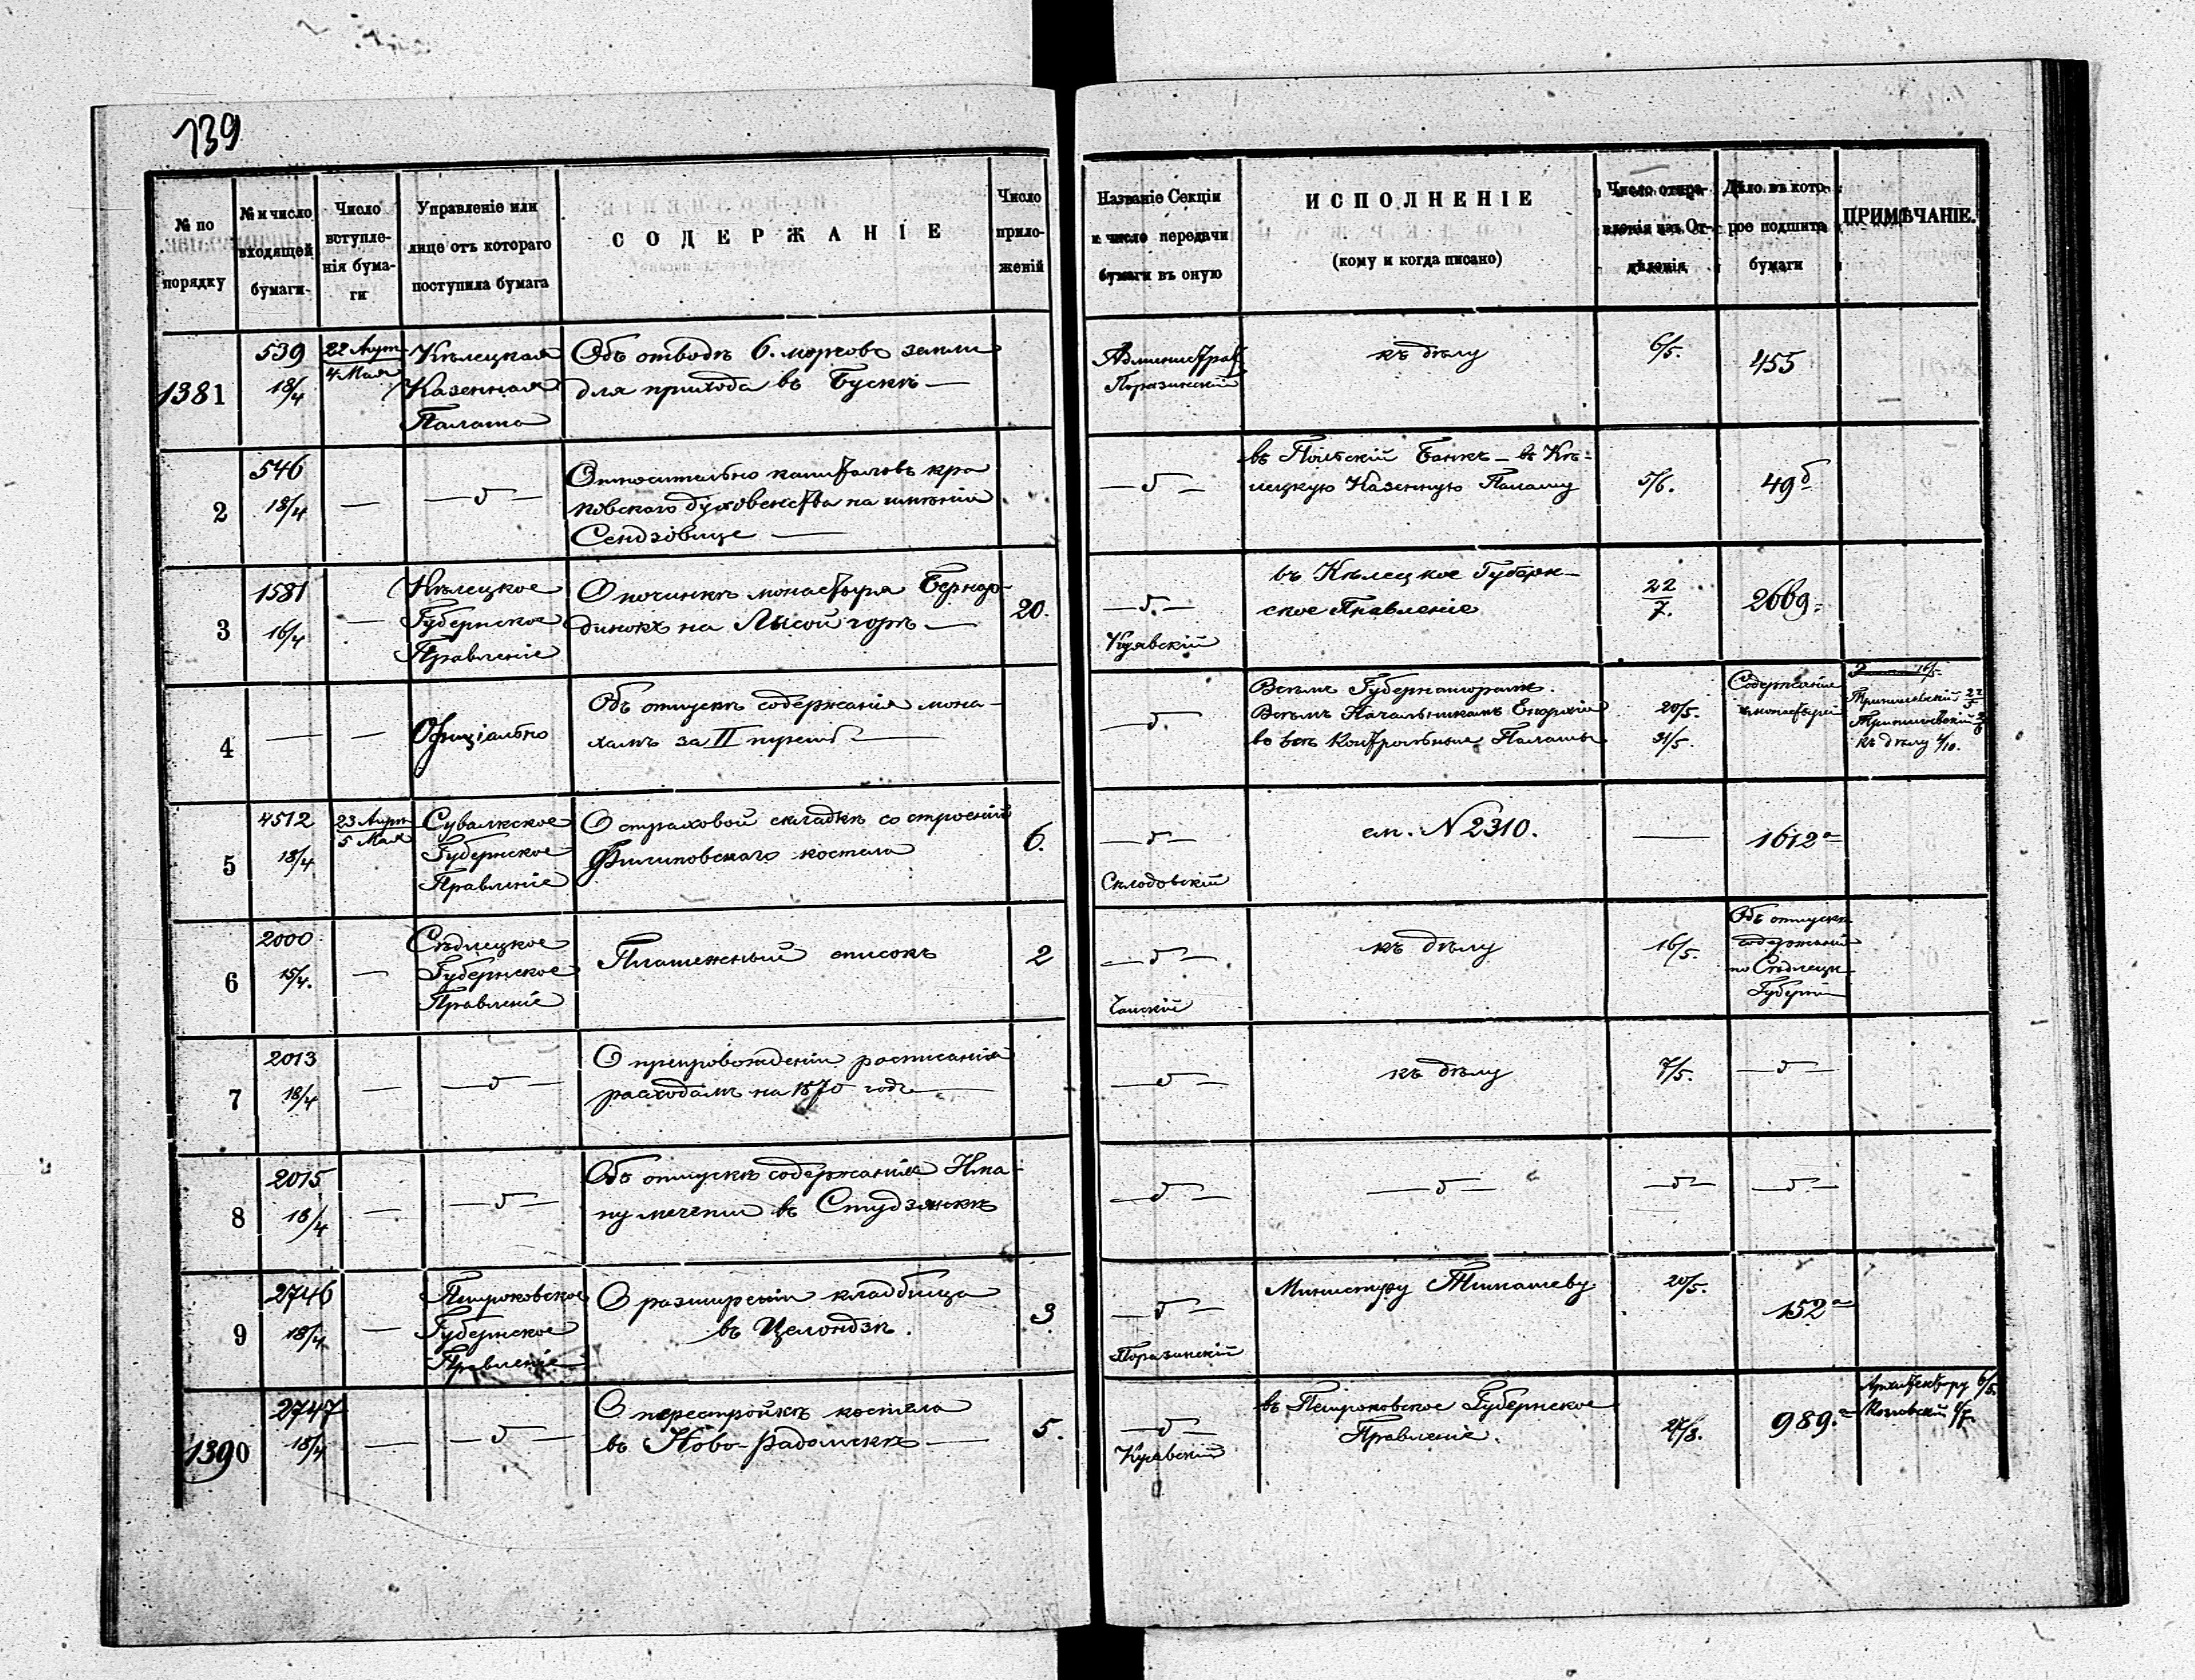 139
№ по порядку
№ и число входящей бумаги
Число вступленія бумаги
Управленіе или лице отъ котораго поступила бумага
СОДЕРЖАНІЕ
Число приложеній
Названіе Секціи и число передачи бумаги въ оную
ИСПОЛНЕНІЕ
(кому и когда писано)
Число отправленія изъ Отдѣленія
Дѣло въ которое подшита бумаги
ПРИМѢЧАНІЕ.
1381
539
18/4
22 Апр
4 Мая
Кѣлецкая
Казенная
Палата
Объ отводѣ 6. морговъ земли
для прихода въ Бускѣ —
Администрат
Поразинскій
къ дѣлу
6/5.
455
2
546
18/4
—
— 5 —
Относительно капиталовъ кра
ковскаго духовенства на имѣніи
Сендзовице —
— 5 —
въ Польскій Банкъ — въ Кѣ=
лецкую Казенную Палату
5/6.
49б
3
1581
16/4
—
Кѣлецкое
Губернское
Правленіе
О починкѣ монастыря Бернар-
динокъ на Лысой горѣ —
20.
— 5. —
Куявскій
въ Кѣлецкое Губерн-
ское Правленіе
22/7.
2669.
4
—
—
Офиціально
Объ отпускѣ содержанія мона-
хамъ за II
— 5.
Всѣмъ Губернаторамъ.
Всѣмъ Начальникамъ Епархій
во всѣ Контрольныя Палаты
20/5.
31/5.
Содержаніе
монастырей
16/5.
къ дѣлу 4/10.
5
4512
18/4
23 Апр
5 Мая
Сувалкское
Губернское
Правленіе
О страховой складкѣ со строеній
Филиповскаго костела
6.
— 5 —
Склодовскій
см. № 2310.
—
1612а
6
2000
15/4.
—
Сѣдлецкое
Губернское
Правленіе
Платежный списокъ
2
— 5 —
къ дѣлу
16/5.
Объ отпускѣ
содержаній
по Сѣдлецк
Губерніи
7
2013
18/4
—
— 5 —
О препровожденіи росписанія
расходамъ на 1870 годъ —
— 5 —
къ дѣлу
7/5.
— 5 —
8
2015
18/4
—
— 5 —
Объ отпускѣ содержанія Има-
му мечети въ Студзянкѣ
— 5 —
— 5 —
— 5 —
— 5 —
9
2746
18/4
—
Петроковское
Губернское
Правленіе
О разширеніи кладбища
въ Целондзѣ.
3
— 5 —
Поразинскій
Министру Тимашеву
20/5.
152а
1390
2747
18/4
—
— 5 —
О перестройкѣ костела
въ Ново-Радомскѣ —
5.
— 5 —
Куявскій
въ Петроковское Губернское
Правленіе.
27/8.
989а
Архитектору 6/5.